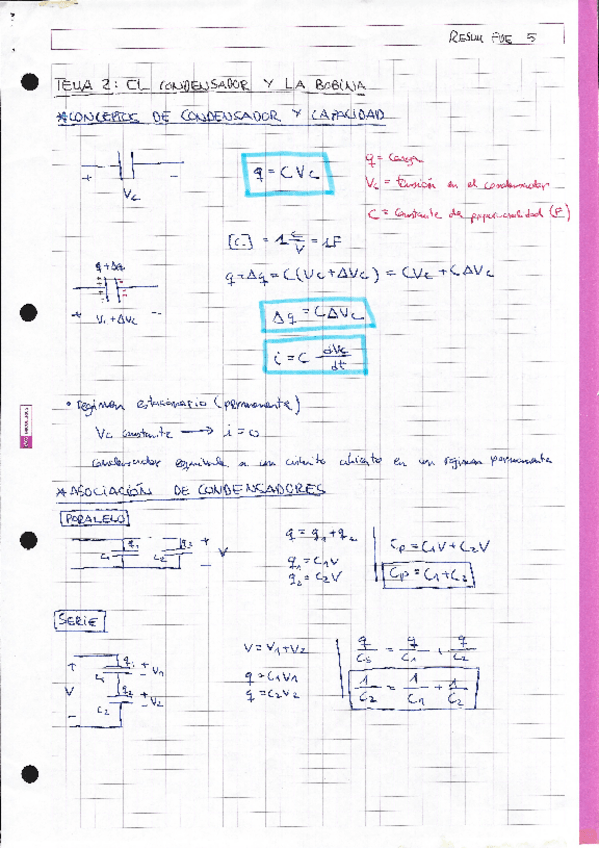 RESUM FUE 5
TEMA 2: EL CONDENSADOR Y LA BOBINA
*CONCEPTOS DE CONDENSADOR Y CAPACIDAD
+ -
Vc
q = C Vc
q = Carga
Vc = tensión en el condensador
C = Constante de proporcionalidad (F)
[C] = 1 C/V = 1F
q + Δq
q + Δq = C(Vc + ΔVc) = CVc + CΔVc
Vc + ΔVc
Δq = CΔVc
i = C dVc/dt
• régimen estacionario (permanente)
Vc constante → i = 0
condensador equivale a un circuito abierto en un régimen permanente
*ASOCIACIÓN DE CONDENSADORES
PARALELO
C1 q1 C2 q2 + - V
q = q1 + q2
q1 = C1V
q2 = C2V
Cp = C1V + C2V
Cp = C1 + C2
SERIE
V + -
C1 q1 + - V1
C2 q2 + - V2
V = V1 + V2
q = C1V1
q = C2V2
q/Cs = q/C1 + q/C2
1/C2 = 1/C1 + 1/C2